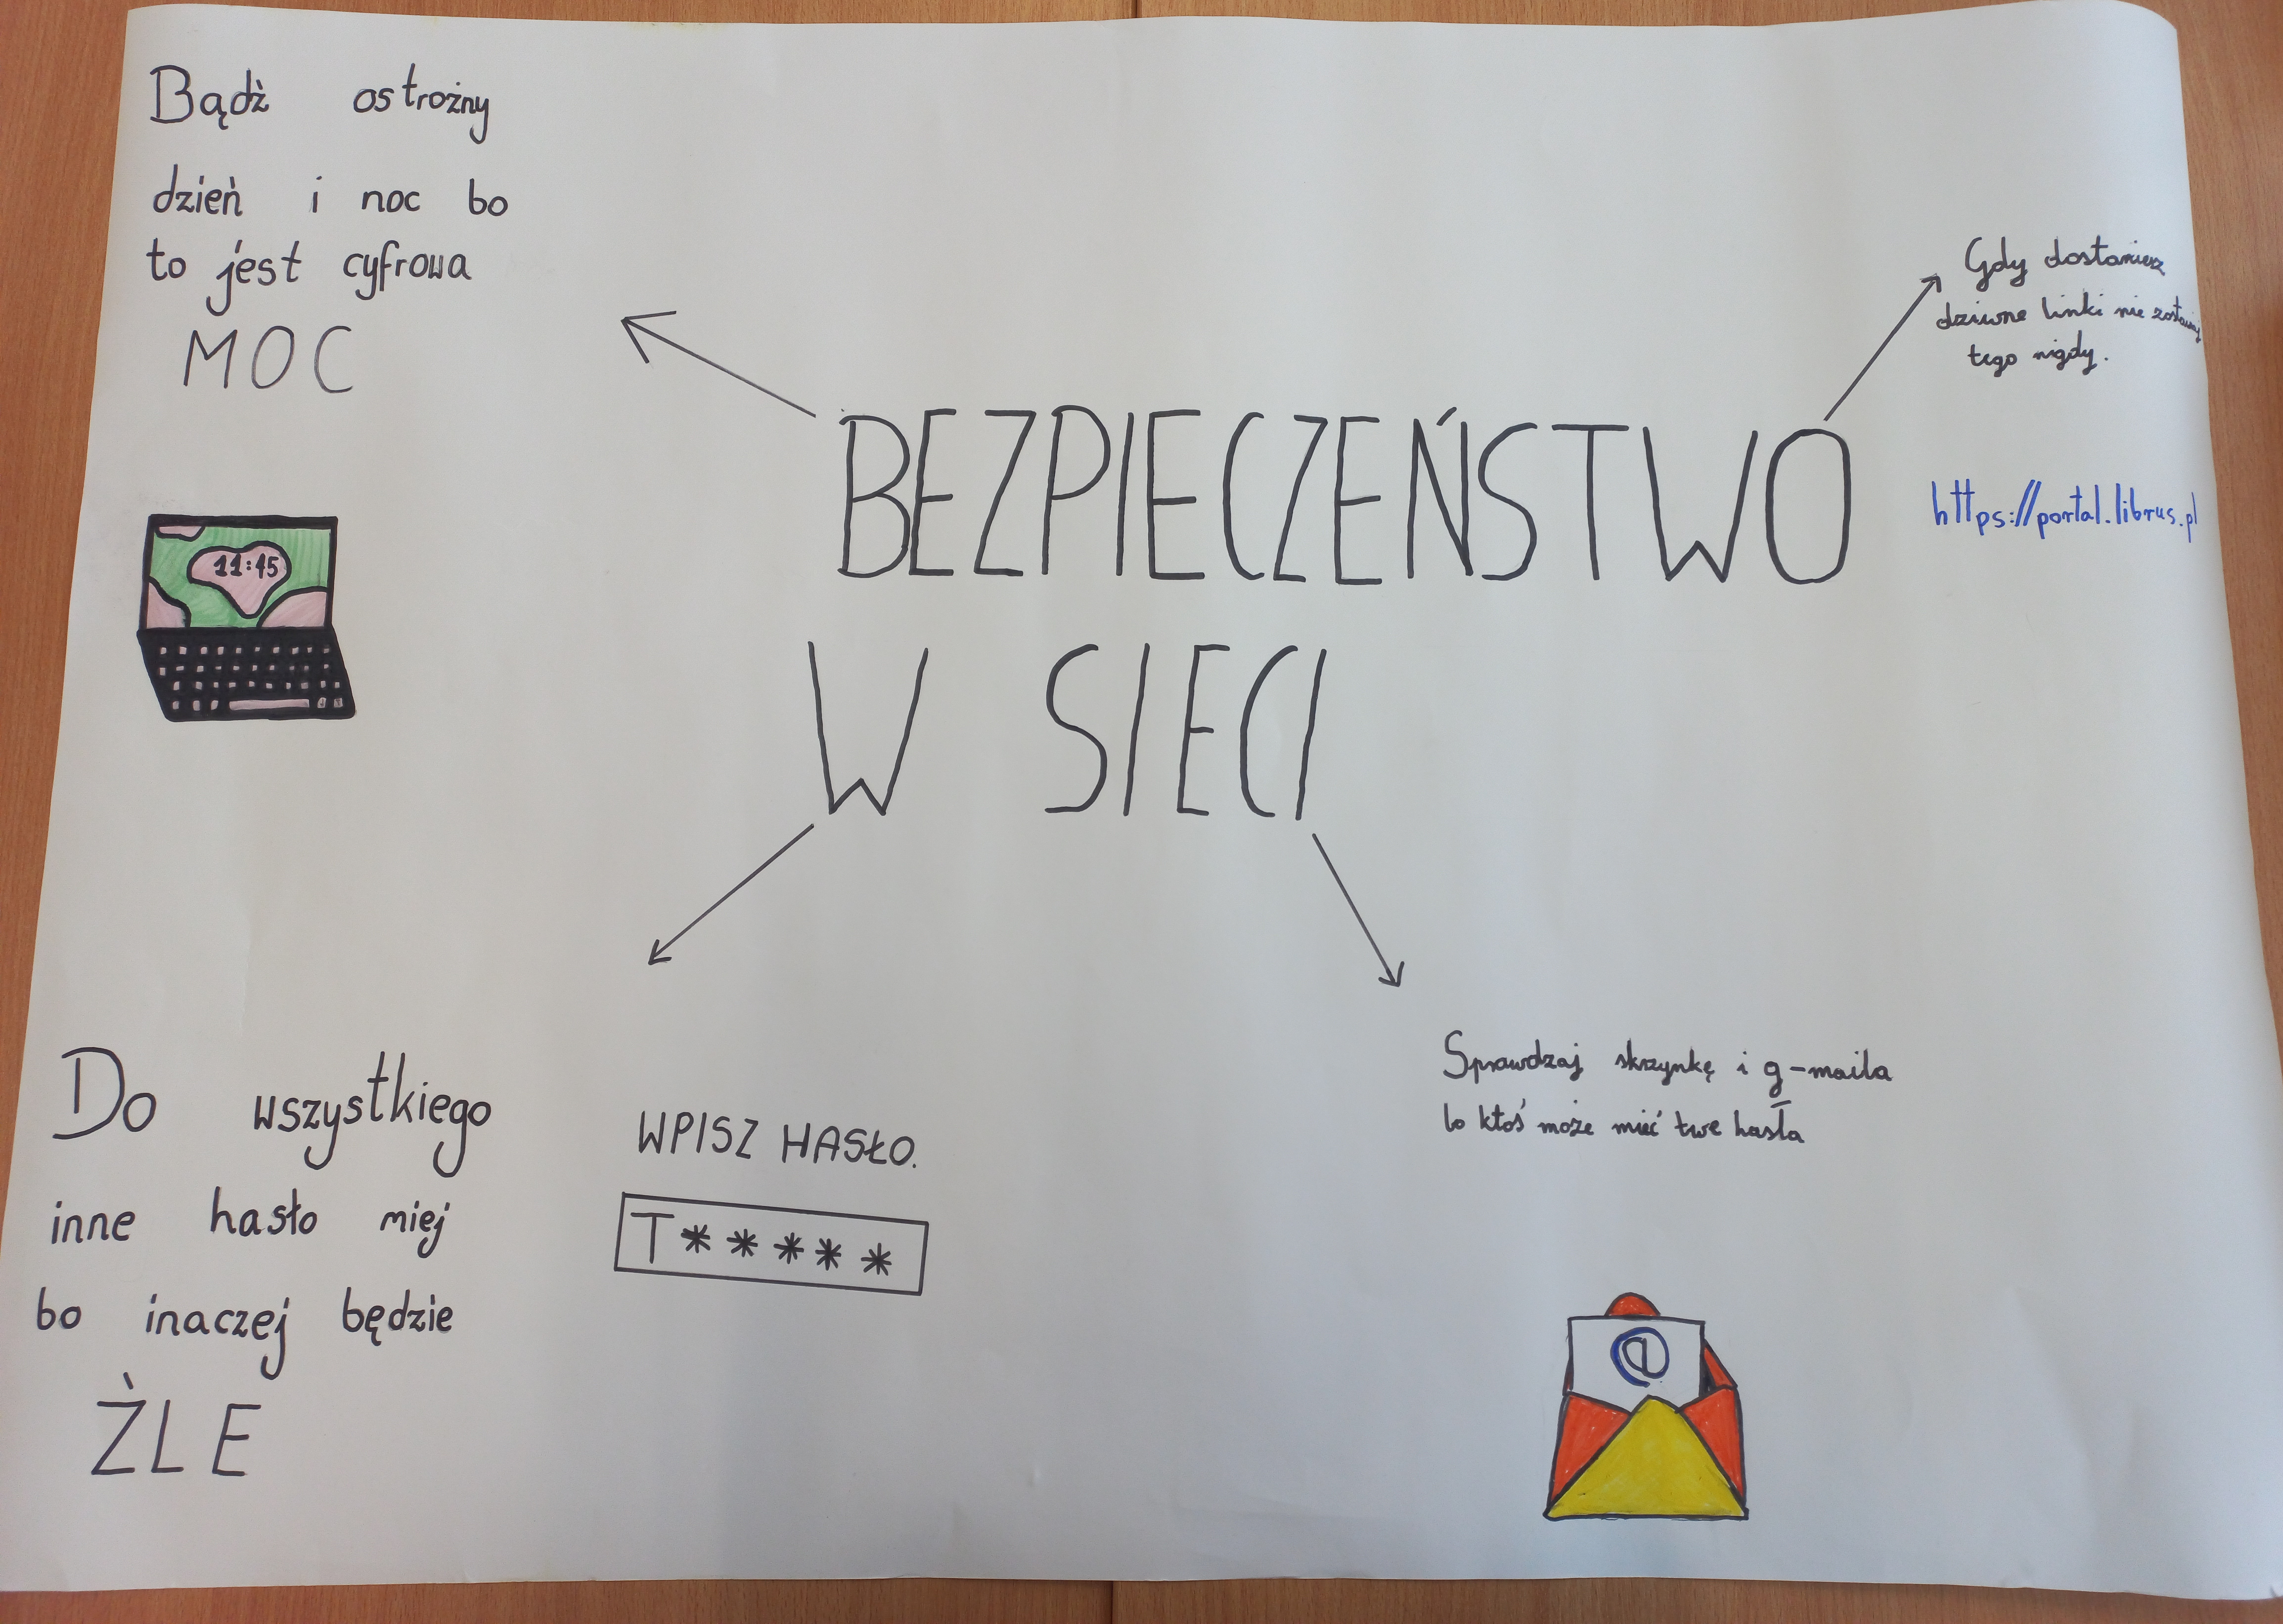 Bądź ostrożny
dzień i noc bo
to jest cyfrowa
MOC
11:45
BEZPIECZEŃSTWO
W SIECI
Gdy dostaniesz
dziwne linki nie zostawiaj
tego nigdy.
https://portal.librus.pl
Do wszystkiego
inne hasło miej
bo inaczej będzie
ŹLE
WPISZ HASŁO.
T*****
Sprawdzaj skrzynkę i g-maila
bo ktoś może mieć twe hasła
@